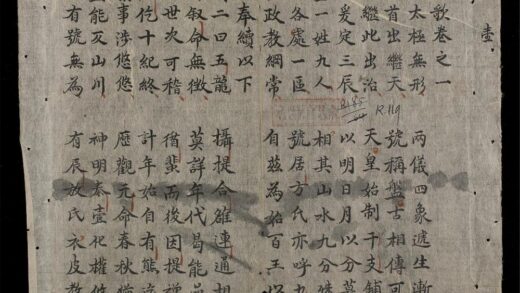 壹
歌卷之一
太極無形 兩儀四象遞生漸
首出繼天 號稱盤古相傳可
繼此出治 天皇始制干支鋪
爰定三辰 以明日月以分
一姓九人 相其山水九分殊
各處一區 號居方氏亦呼九
政教綱常 自茲為始百王
奉續以下
二曰五龍 攝提合雒連通相
叙命無徵 莫詳年代曷能
世次可稽 循蜚而後因提禪
仡十紀終 計年始自有熊
事涉悠悠 歷觀元命春秋
能災山川 神明泰壹化權
有號無為 有辰放氏衣皮教
R.119